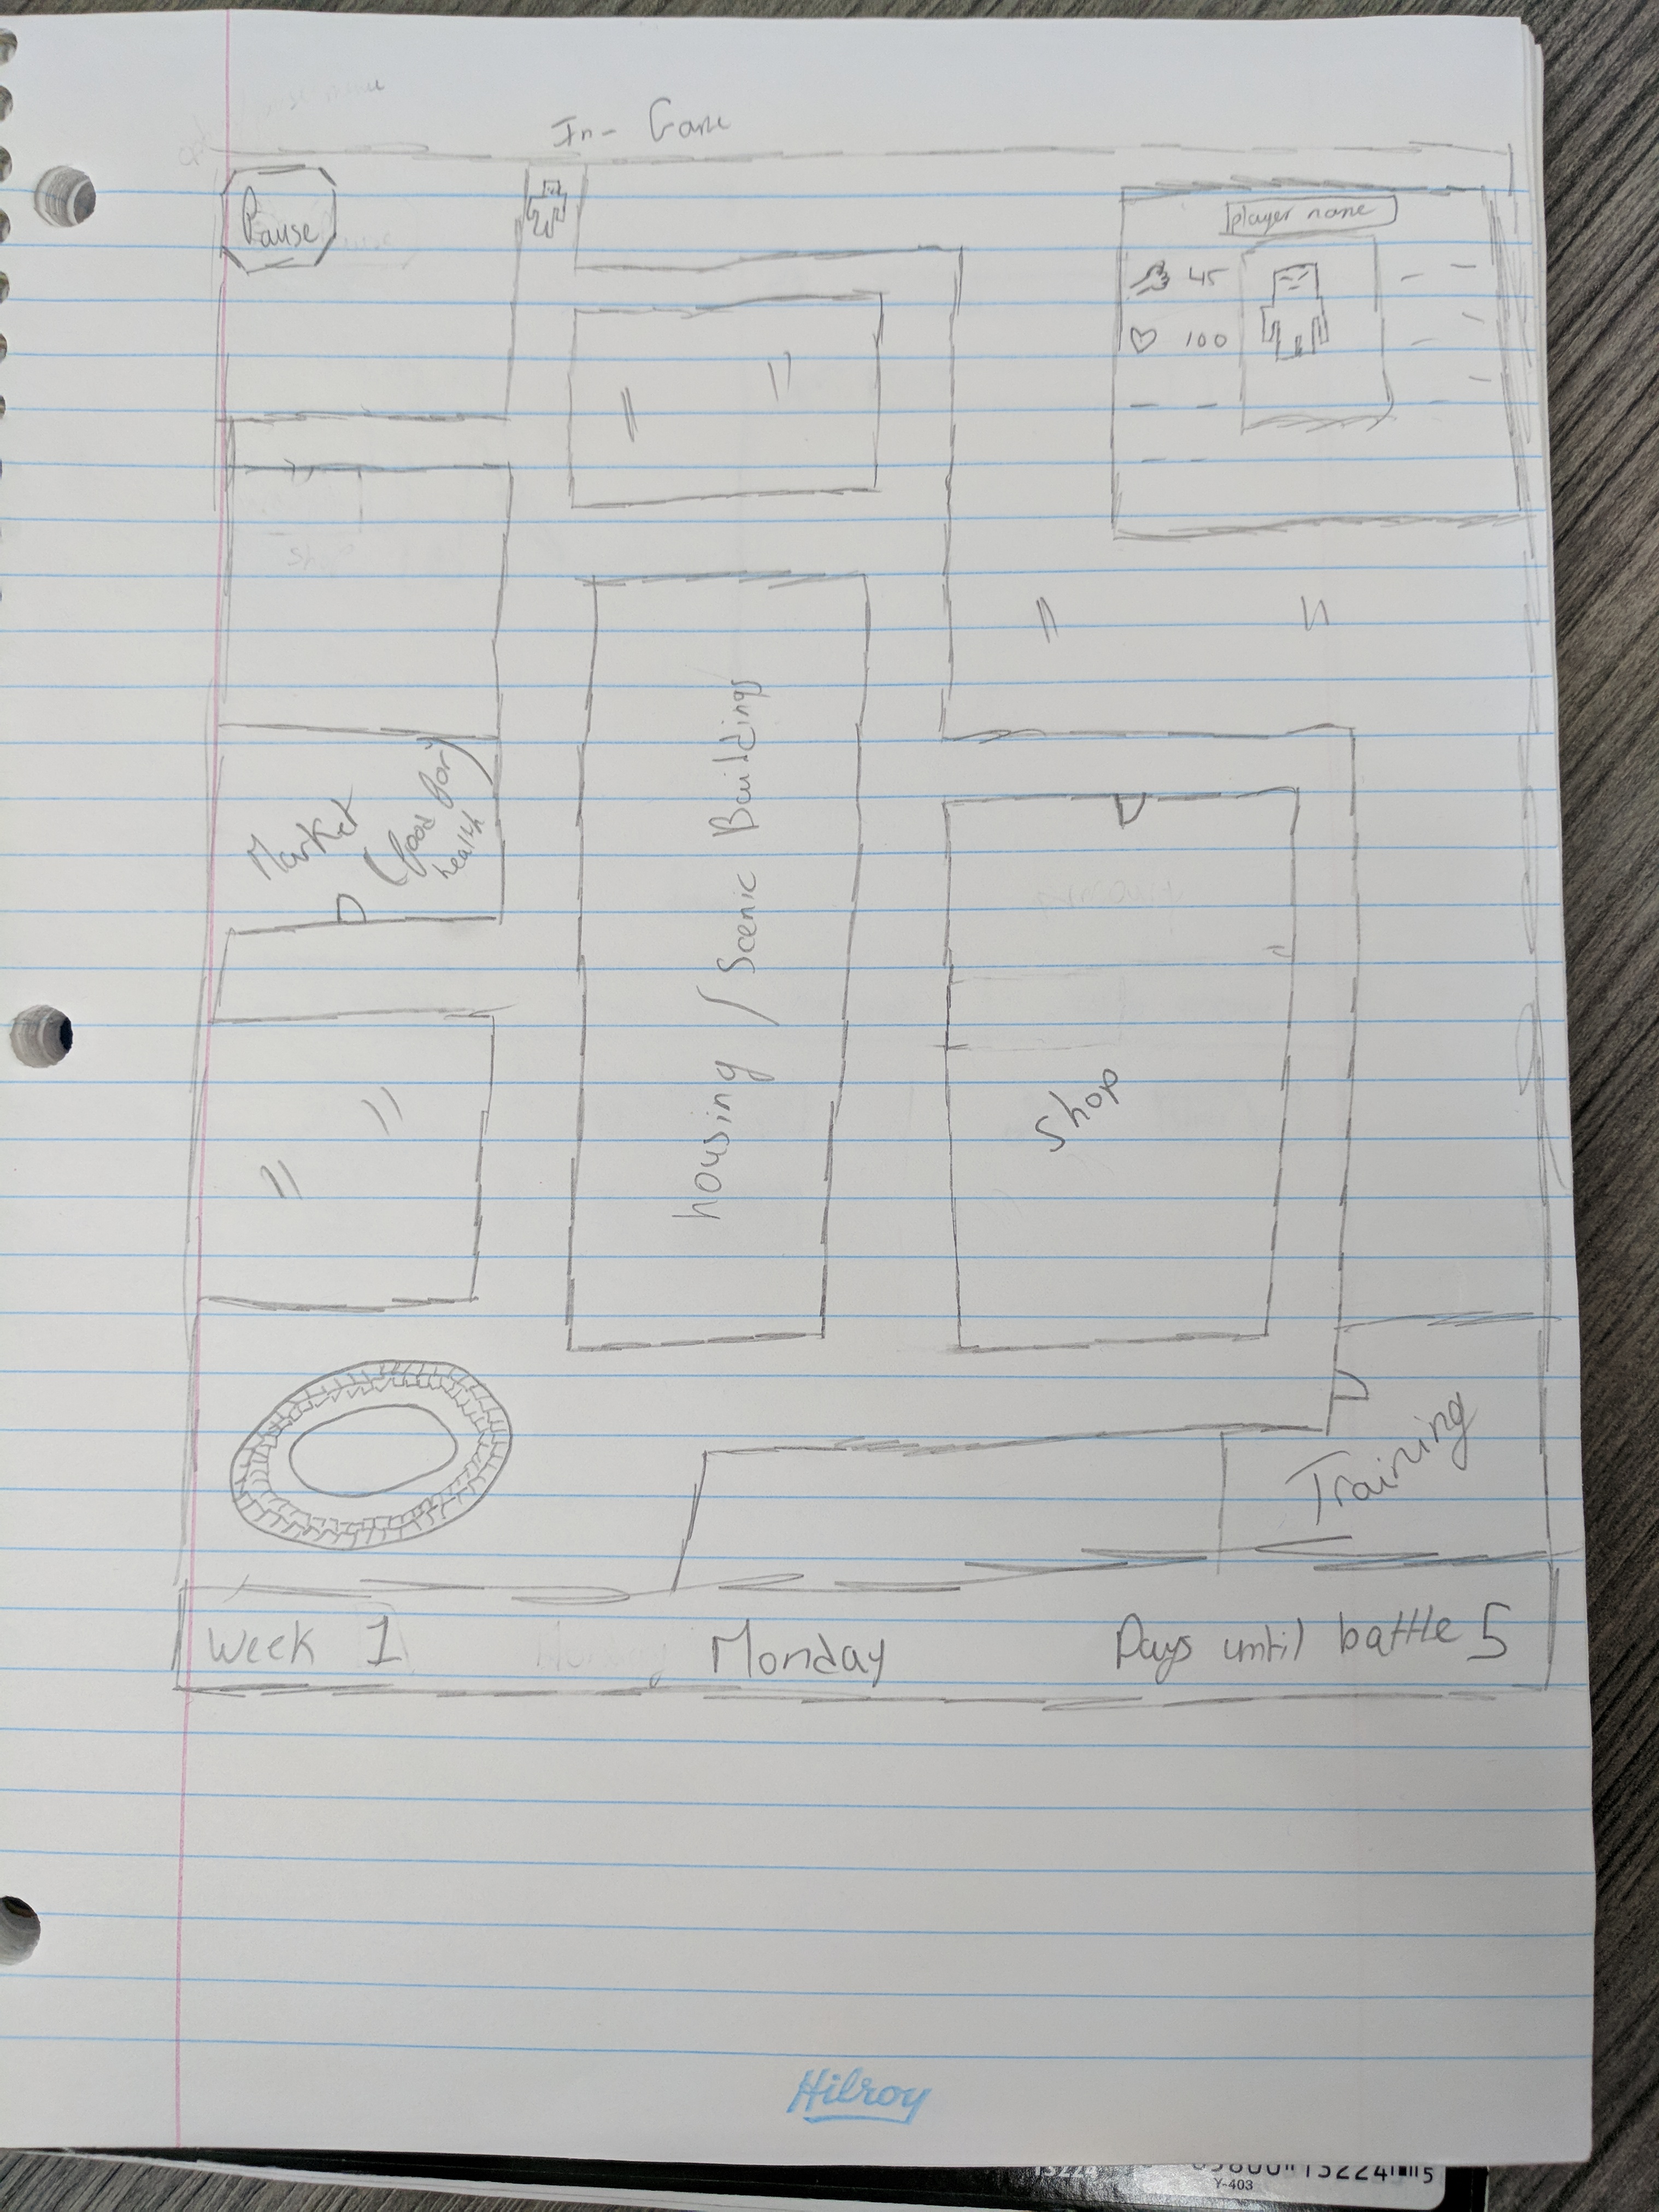 In-Game
Pause
player name
45
100
Market
(food for
health)
housing / Scenic Buildings
Shop
Training
Week 1
Monday
Days until battle 5
Hilroy
Y-403